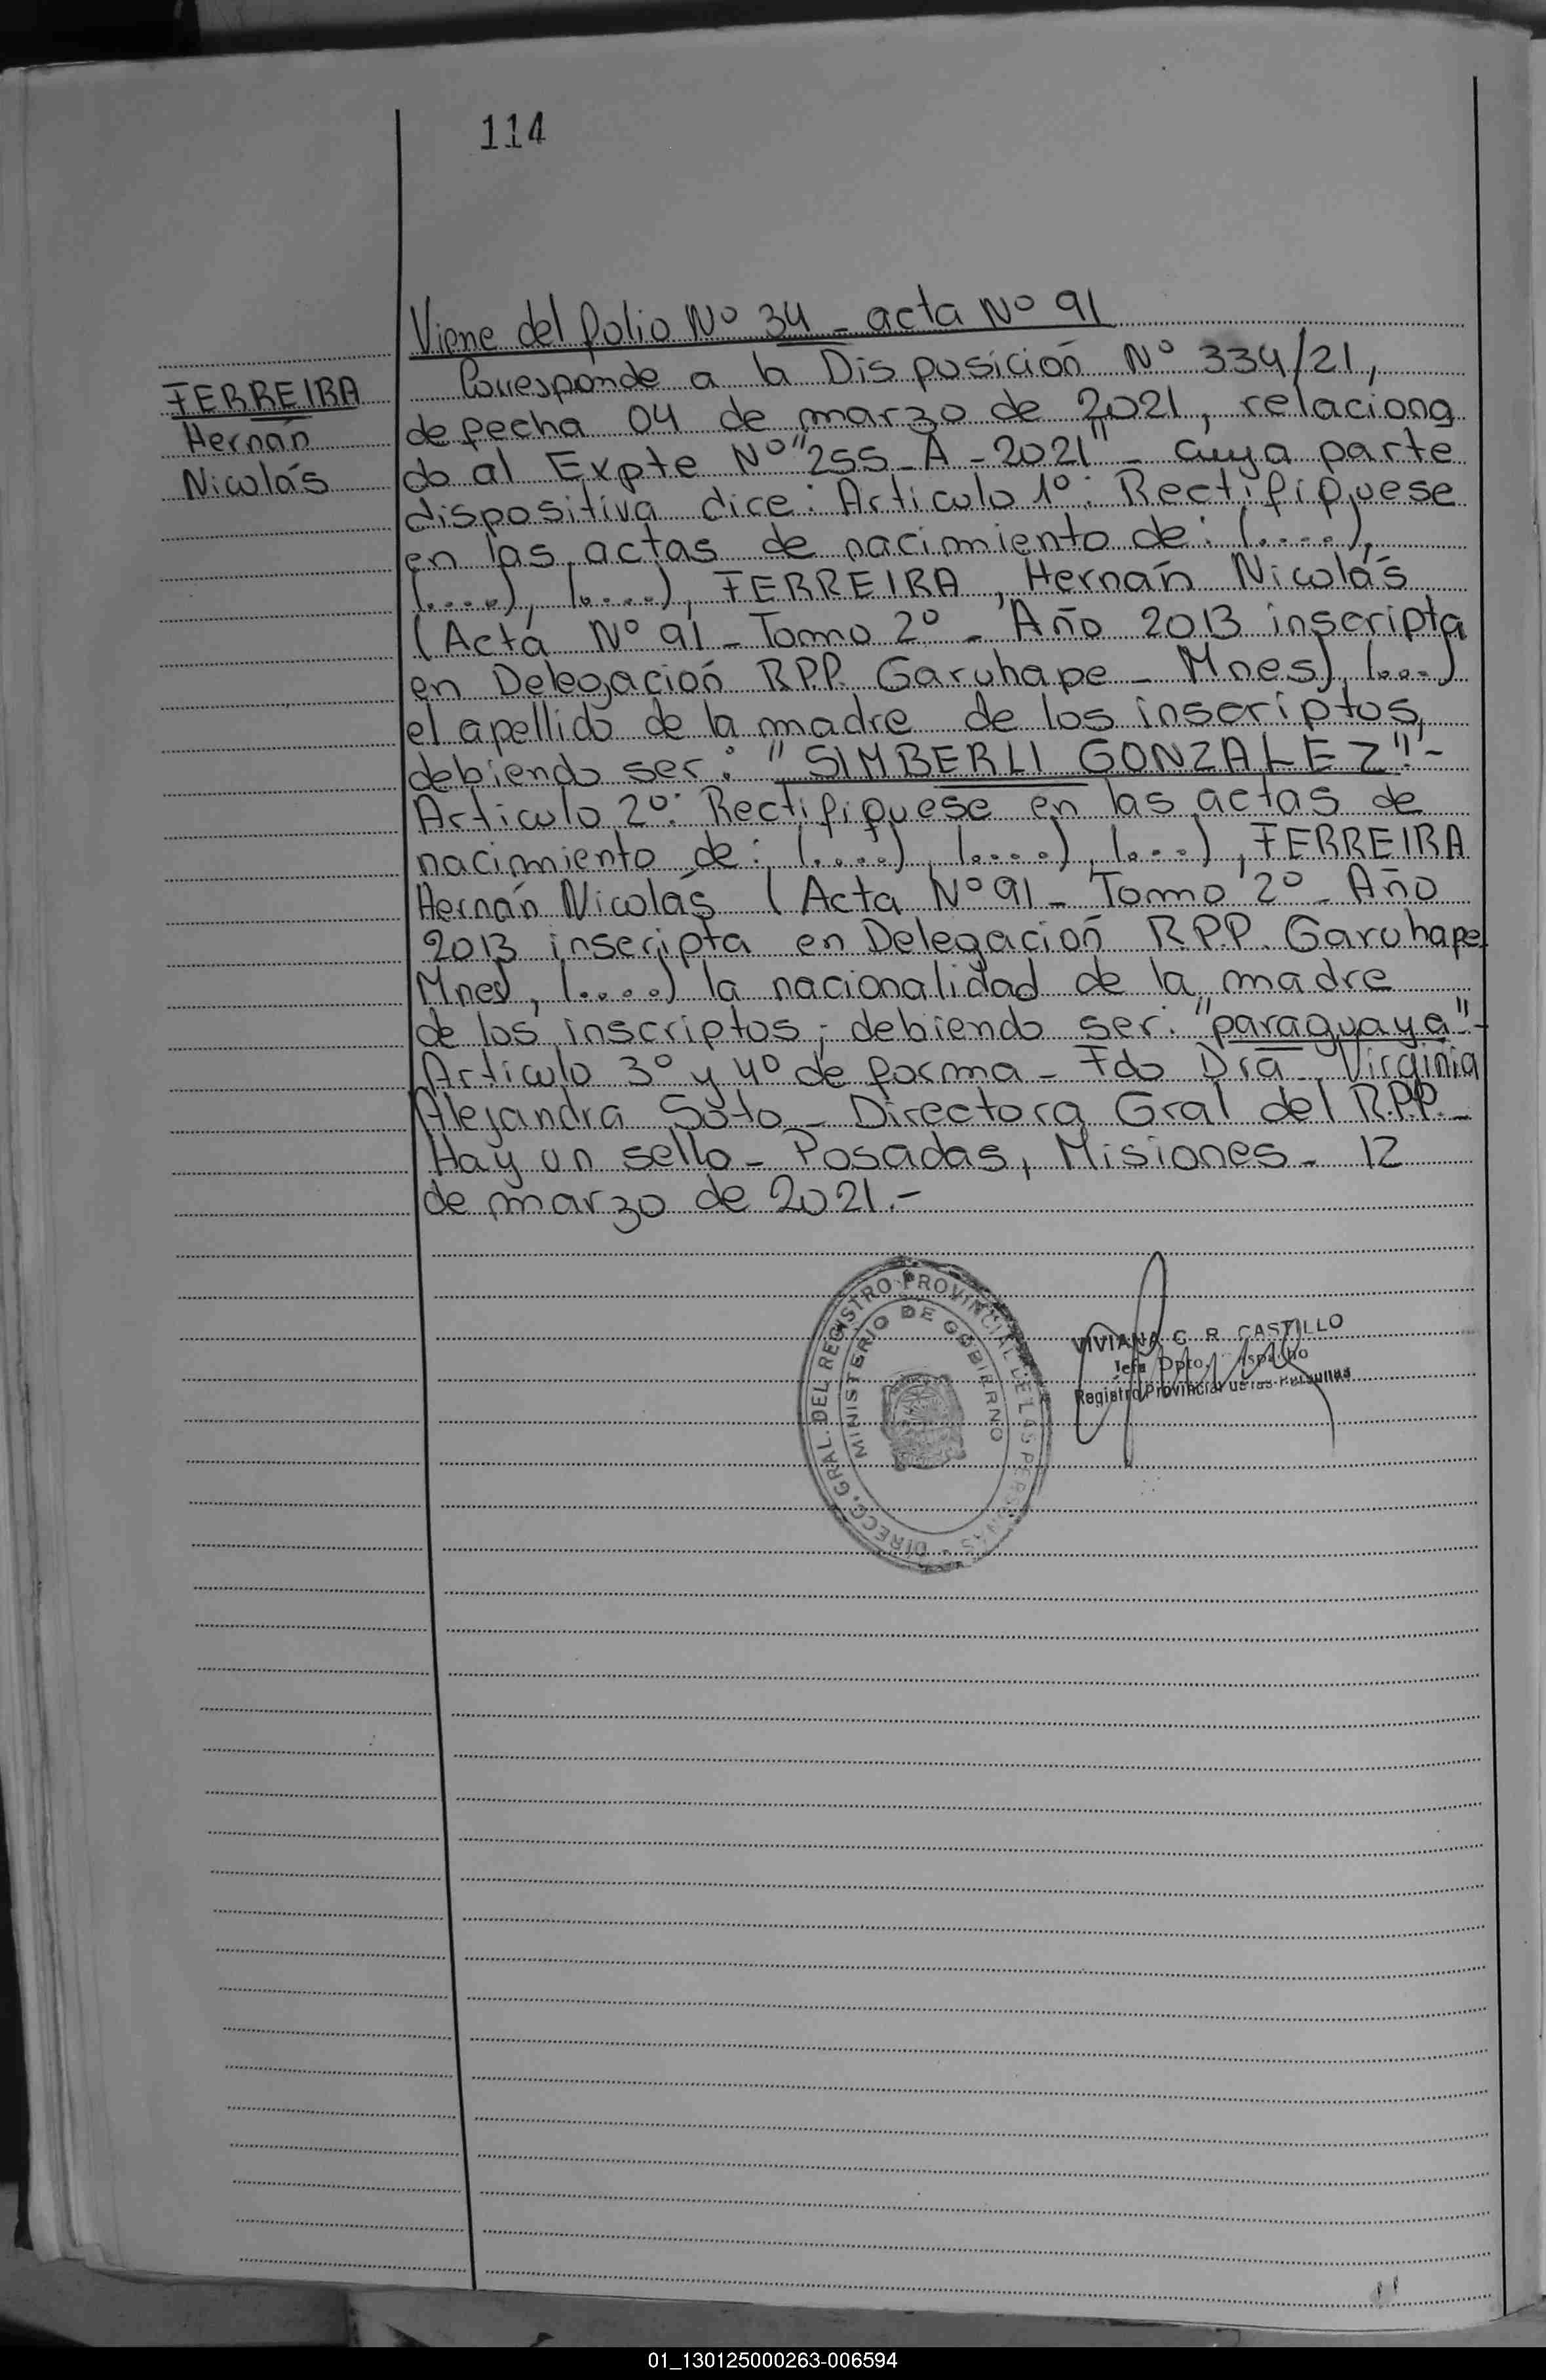 114
Viene del folio Nº 34 - acta Nº 91
FERREIRA
Hernán
Nicolás
Corresponde a la Disposición Nº 334/21,
de fecha 04 de marzo de 2021, relaciona
do al Expte Nº "255-A-2021" - cuya parte
dispositiva dice: Articulo 1º: Rectifiquese
en las actas de nacimiento de: (....),
(....), (....), FERREIRA, Hernán Nicolás
(Acta Nº 91 - Tomo 2º - Año 2013 inscripta
en Delegación RPP. Garuhape - Mnes), (....)
el apellido de la madre de los inscriptos,
debiendo ser: "SIMBERLI GONZALEZ".-
Articulo 2º: Rectifiquese en las actas de
nacimiento de: (....), (....), (...), FERREIRA
Hernán Nicolás (Acta Nº 91 - Tomo 2º - Año
2013 inscripta en Delegación RPP. Garuhape
Mnes), (....) la nacionalidad de la madre
de los inscriptos, debiendo ser: "paraguaya".-
Articulo 3º y 4º de forma - Fdo Dra. Virginia
Alejandra Soto - Directora Gral del R.P.P. -
Hay un sello - Posadas, Misiones - 12
de marzo de 2021.-
DIRECC. GRAL. DEL REGISTRO PROVINCIAL DE LAS PERSONAS
MINISTERIO DE GOBIERNO
VIVIANA C. R. CASTILLO
Jefa Dpto.
Registro Provincial de las Personas
01_130125000263-006594